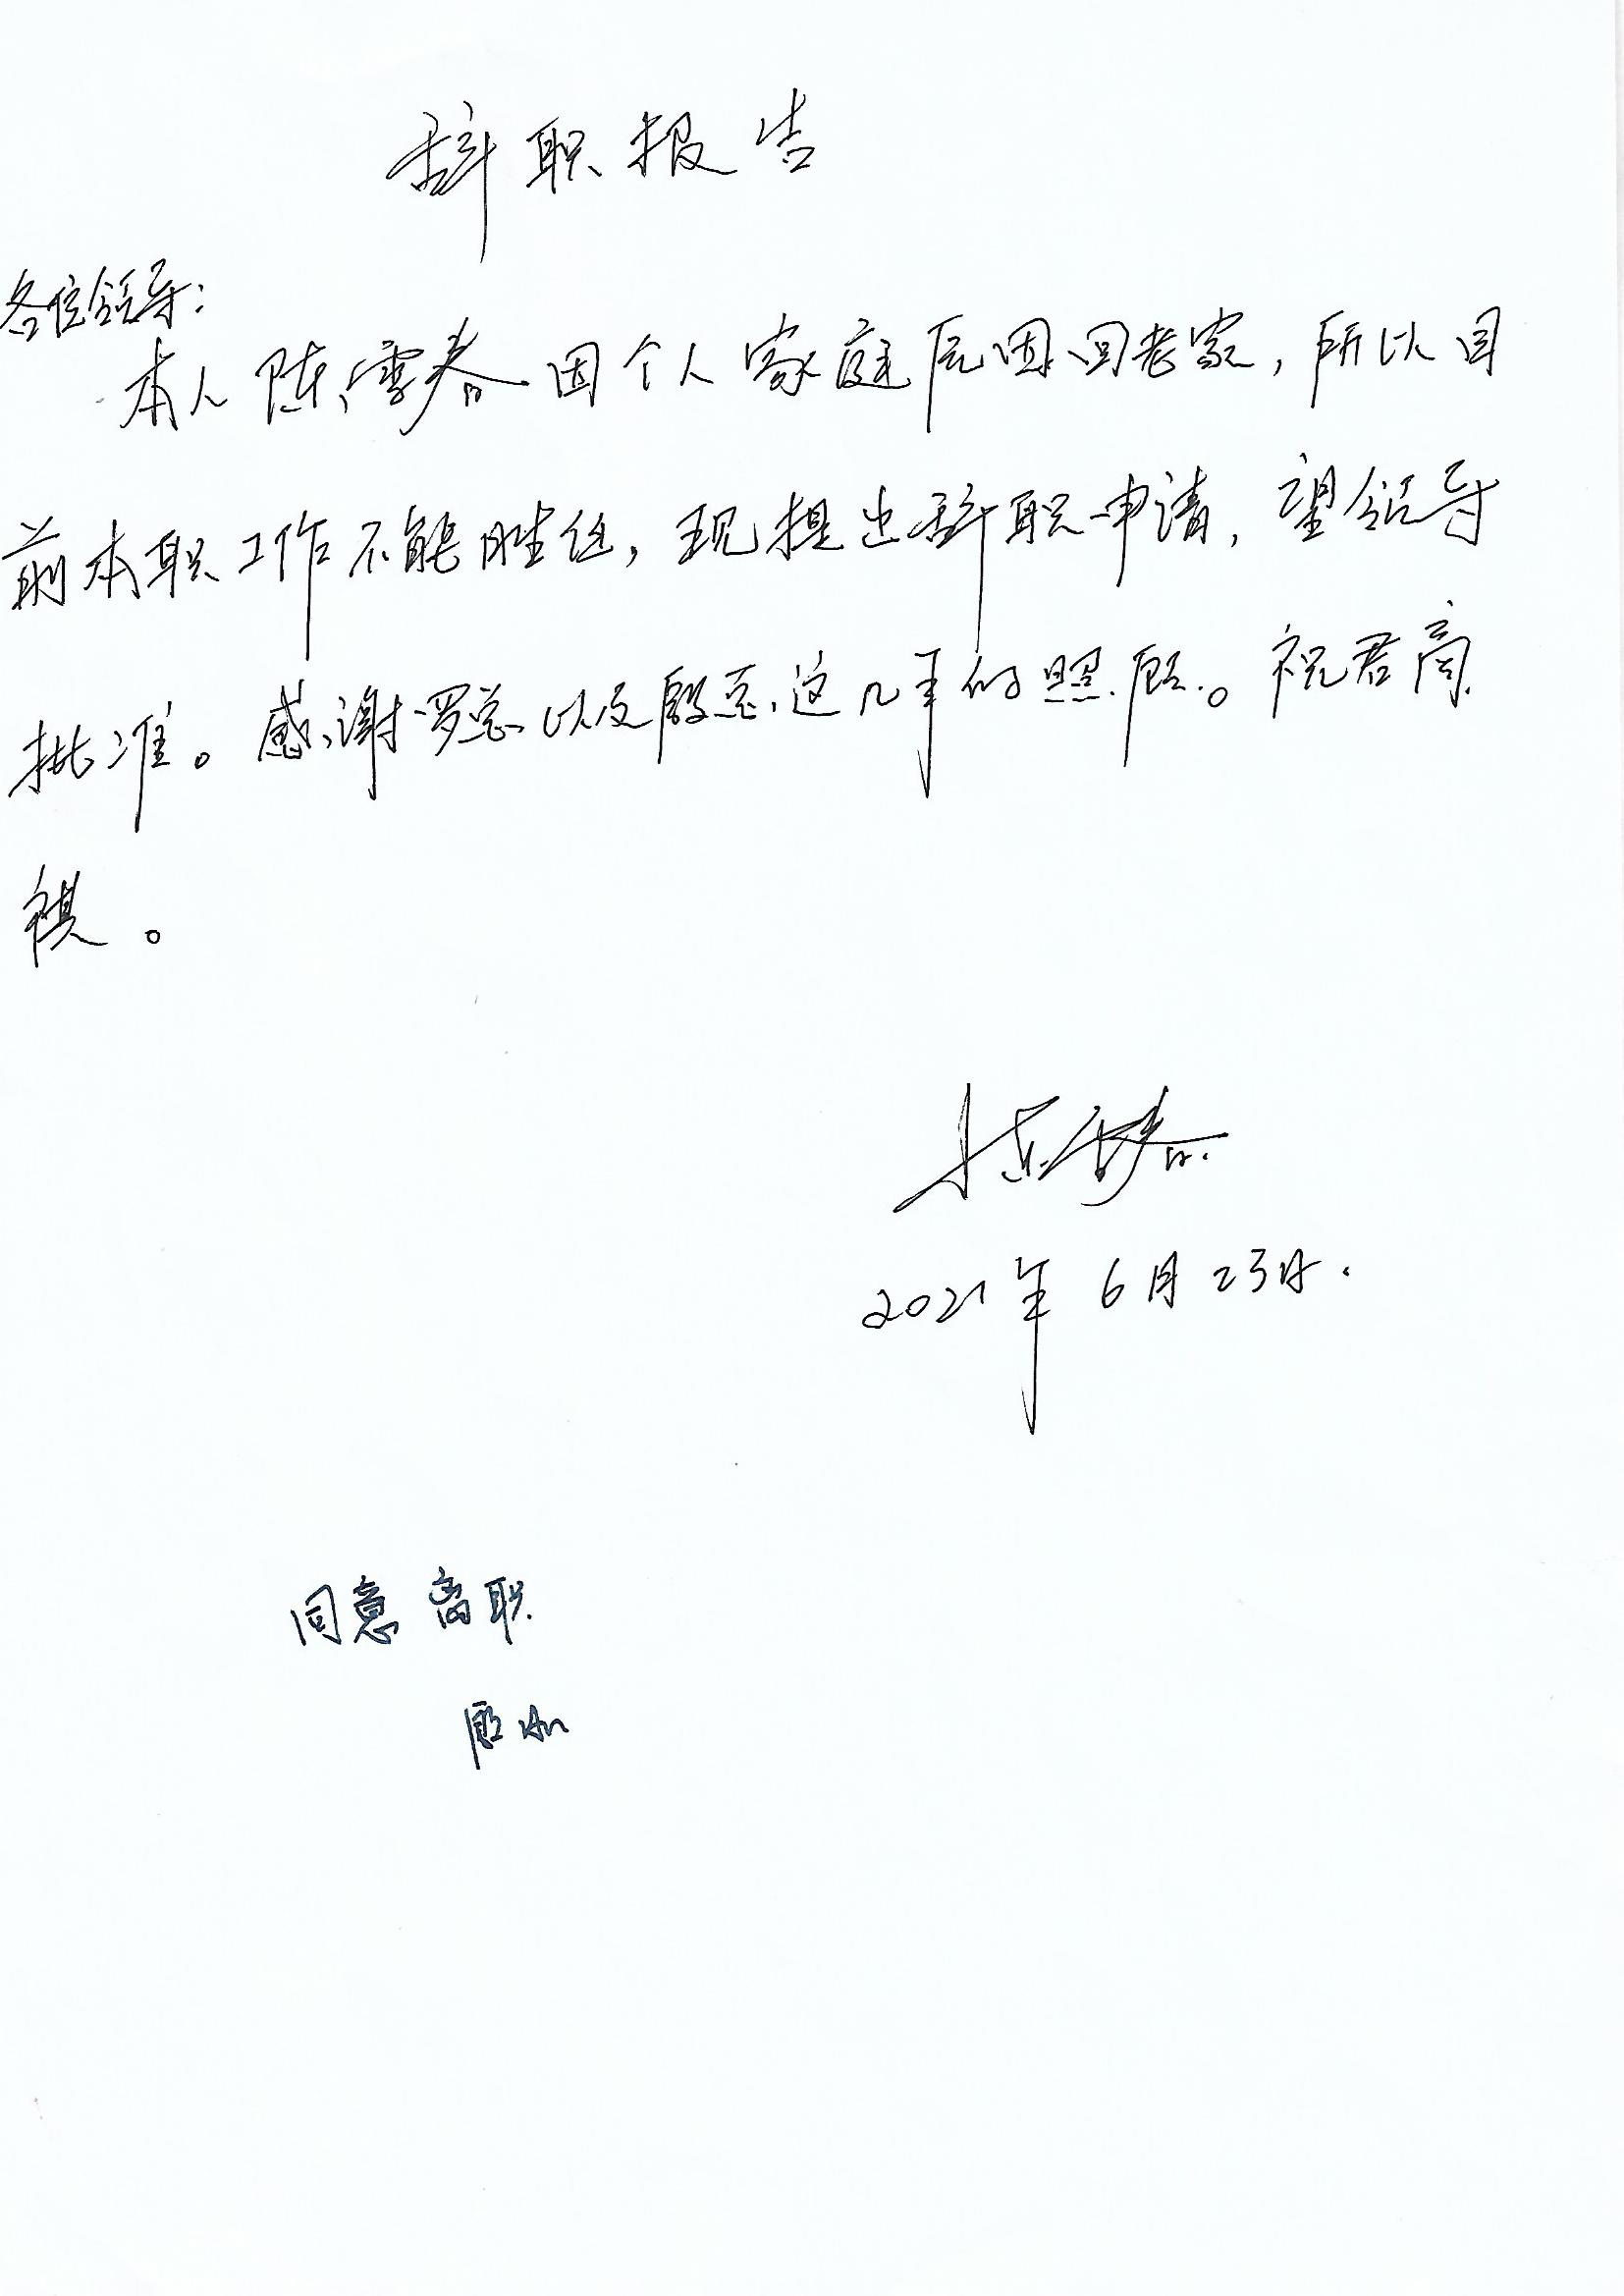 辞职报告
各位领导：
本人陈雪春因个人家庭原因回老家，所以目
前本职工作不能胜任，现提出辞职申请，望领导
批准。感谢罗总以及殷总这几年的照顾。祝君商
祺。
陈雪春
2021年6月23日.
同意离职